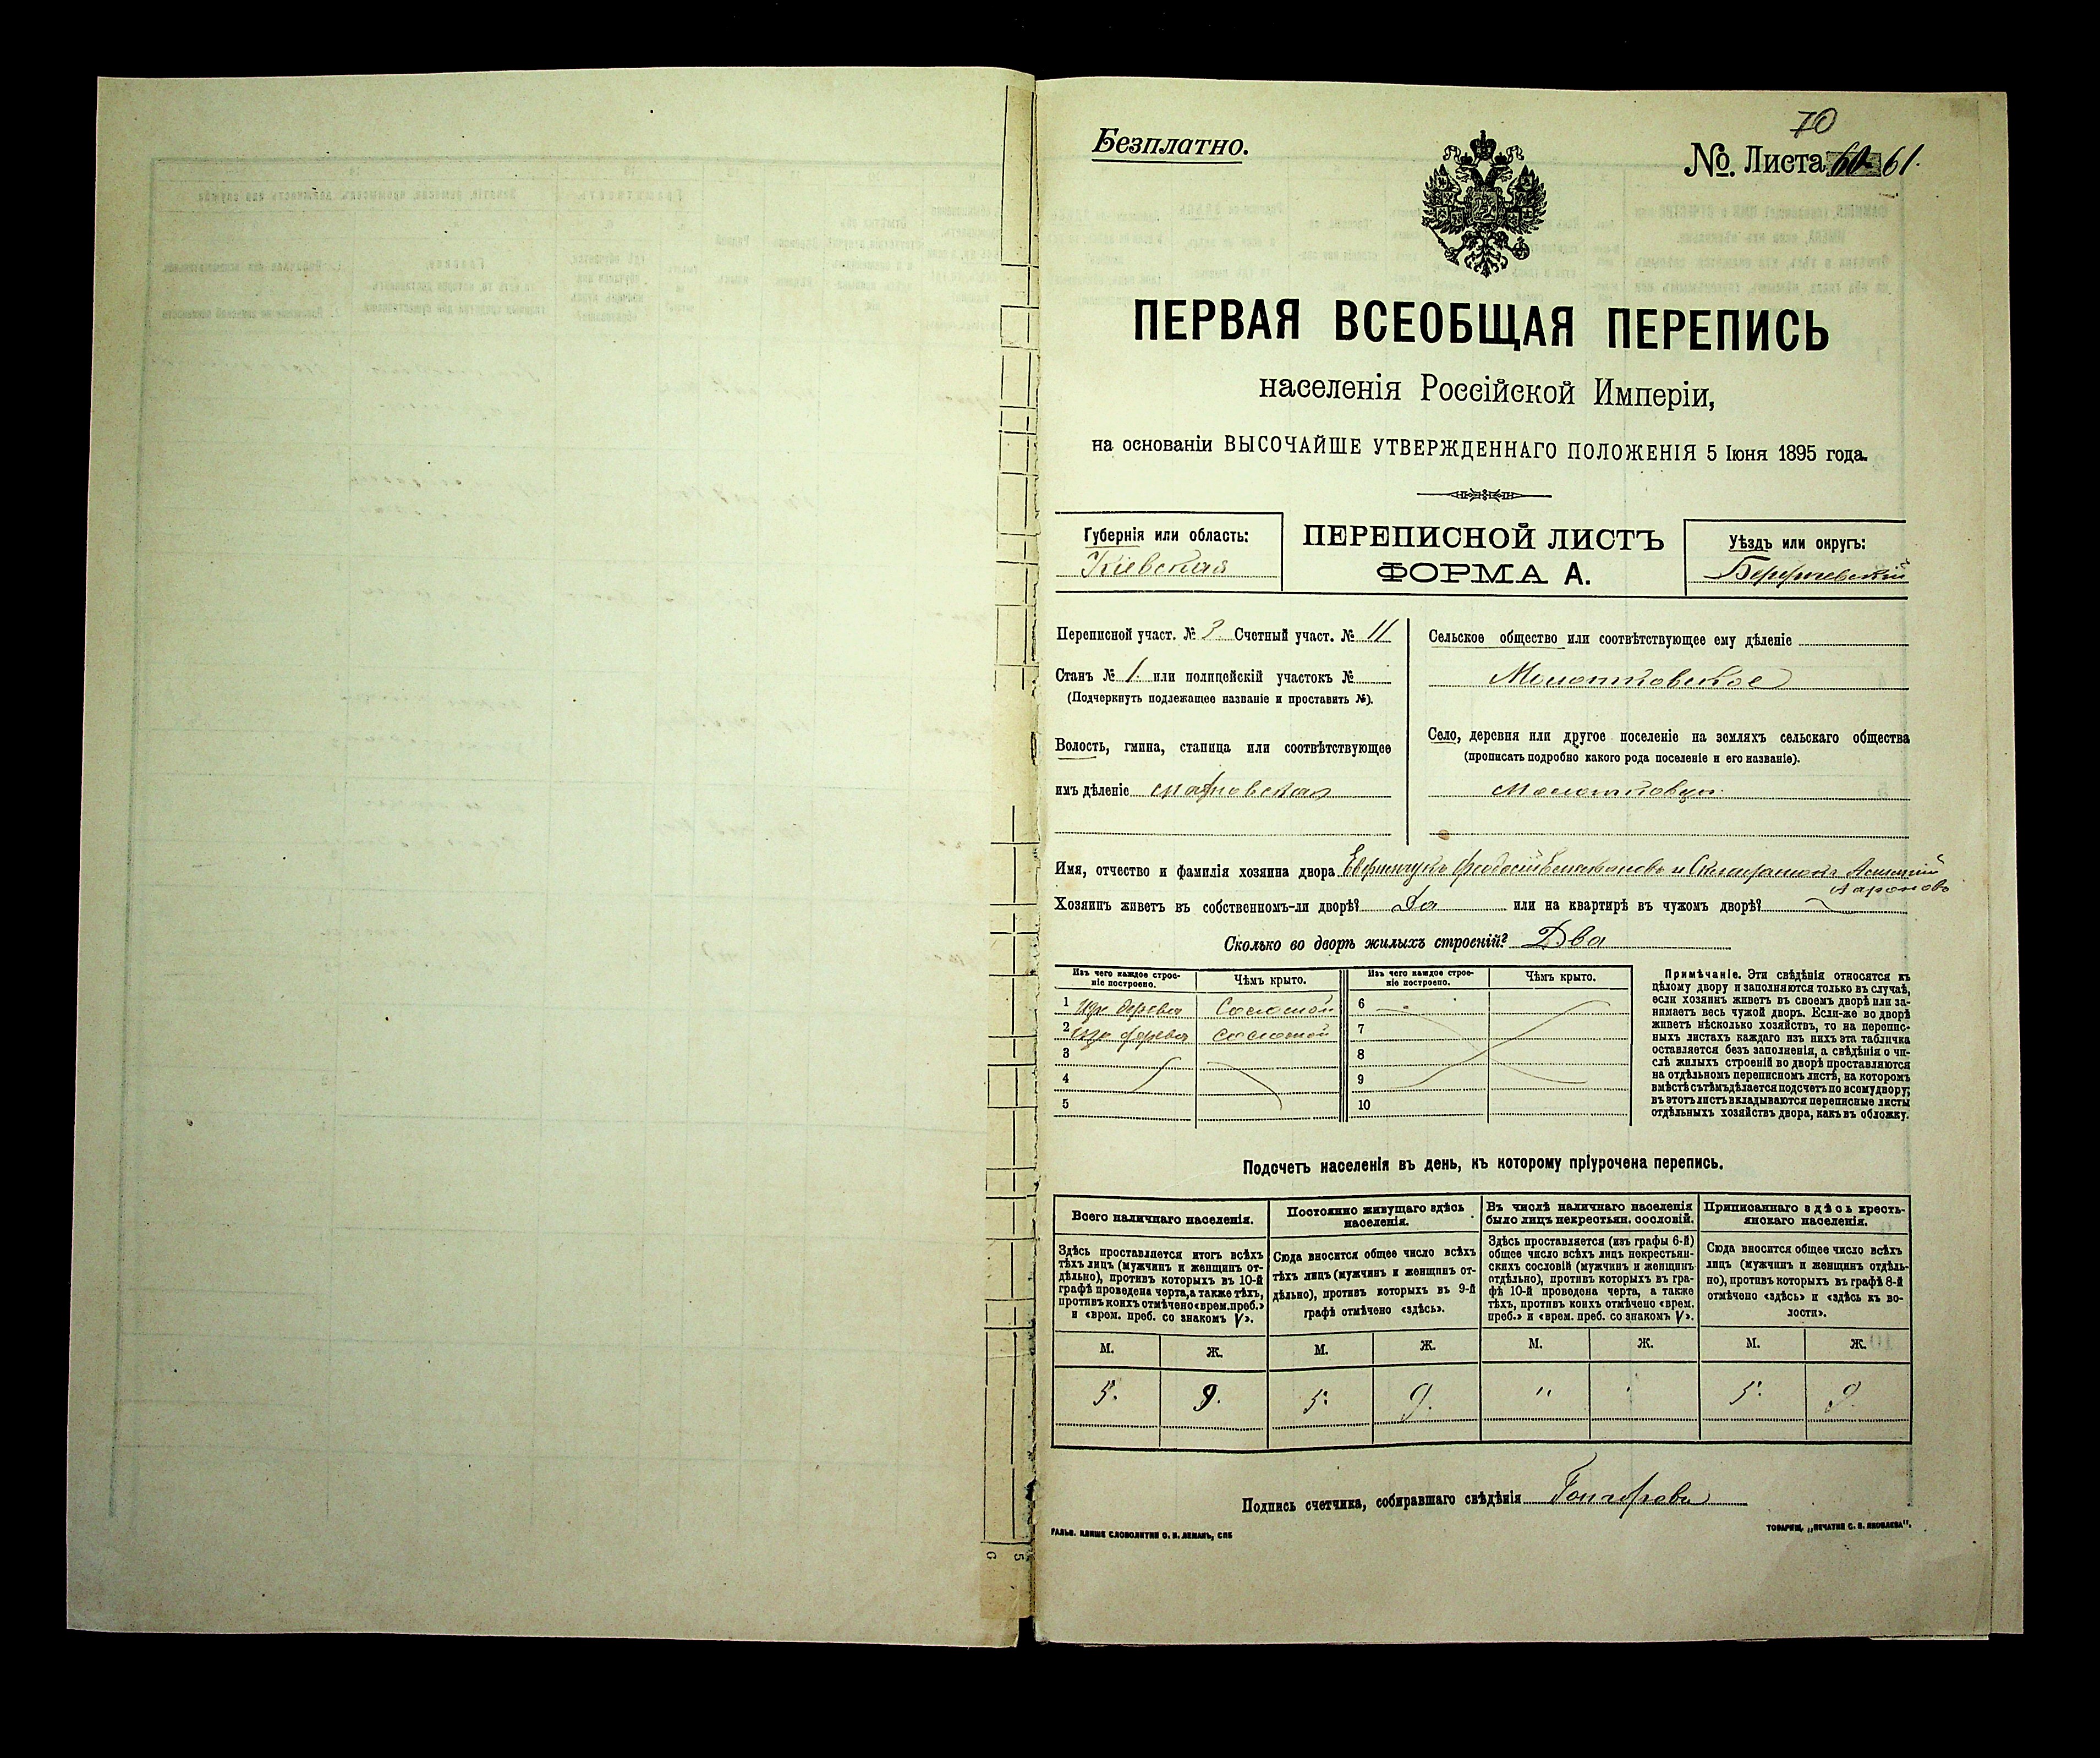 70
Безплатно.
№. Листа 61.
ПЕРВАЯ ВСЕОБЩАЯ ПЕРЕПИСЬ
населенія Россійской Имперіи,
на основаніи ВЫСОЧАЙШЕ УТВЕРЖДЕННАГО ПОЛОЖЕНІЯ 5 Іюня 1895 года.
Губернія или область:
Кіевская
ПЕРЕПИСНОЙ ЛИСТЪ
ФОРМА А.
Уѣздъ или округъ:
Бердичевскій
Переписной участ. № 3. Счетный участ. № 11
Станъ № 1. или полицейскій участокъ №
(Подчеркнуть подлежащее названіе и проставить №).
Волость, гмина, станица или соотвѣтствующее
имъ дѣленіе
Сельское общество или соотвѣтствующее ему дѣленіе
Молотковское
Село, деревня или другое поселеніе на земляхъ сельскаго общества
(прописать подробно какого рода поселеніе и его названіе).
Молотковцы
Имя, отчество и фамилія хозяина двора
Хозяинъ живетъ въ собственномъ-ли дворѣ? Да или на квартирѣ въ чужомъ дворѣ?
Сколько во дворѣ жилыхъ строеній? Два
Изъ чего каждое строе-
ніе построено.
Чѣмъ крыто.
1 Изъ дерева Соломой
2 изъ дерева соломой
3
4
5
Изъ чего каждое строе-
ніе построено.
Чѣмъ крыто.
6
7
8
9
10
Примѣчаніе. Эти свѣдѣнія относятся къ
цѣлому двору и заполняются только въ случаѣ,
если хозяинъ живетъ въ своемъ дворѣ или за-
нимаетъ весь чужой дворъ. Если-же во дворѣ
живетъ нѣсколько хозяйствъ, то на перепис-
ныхъ листахъ каждаго изъ нихъ эта табличка
оставляется безъ заполненія, а свѣдѣнія о чи-
слѣ жилыхъ строеній во дворѣ проставляются
на отдѣльномъ переписномъ листѣ, на которомъ
вмѣстѣ съ тѣмъ дѣлается подсчетъ по всему двору;
въ этотъ листъ вкладываются переписные листы
отдѣльныхъ хозяйствъ двора, какъ въ обложку.
Подсчетъ населенія въ день, къ которому пріурочена перепись.
Всего наличнаго населенія.
Здѣсь проставляется итогъ всѣхъ
тѣхъ лицъ (мужчинъ и женщинъ от-
дѣльно), противъ которыхъ въ 10-й
графѣ проведена черта, а также тѣхъ,
противъ коихъ отмѣчено «врем. преб.»
и «врем. преб. со знакомъ V».
Постоянно живущаго здѣсь
населенія.
Сюда вносится общее число всѣхъ
тѣхъ лицъ (мужчинъ и женщинъ от-
дѣльно), противъ которыхъ въ 9-й
графѣ отмѣчено «здѣсь».
Въ числѣ наличнаго населенія
было лицъ некрестьян. сословій.
Здѣсь проставляется (изъ графы 6-й)
общее число всѣхъ лицъ некрестьян-
скихъ сословій (мужчинъ и женщинъ
отдѣльно), противъ которыхъ въ гра-
фѣ 10-й проведена черта, а также
тѣхъ, противъ коихъ отмѣчено «врем.
преб.» и «врем. преб. со знакомъ V».
Приписаннаго здѣсь кресть-
янскаго населенія.
Сюда вносится общее число всѣхъ
лицъ (мужчинъ и женщинъ отдѣль-
но), противъ которыхъ въ графѣ 8-й
отмѣчено «здѣсь» и «здѣсь къ во-
лости».
М. Ж. М. Ж. М. Ж. М. Ж.
5. 9. 5. 9. " " 5. 9.
Подпись счетчика, собиравшаго свѣдѣнія
ГАЛЬВ. КЛИШЕ СЛОВОЛИТНИ О. И. ЛЕМАНЪ, СПБ
ТОВАРИЩ. „ПЕЧАТНЯ С. П. ЯКОВЛЕВА".